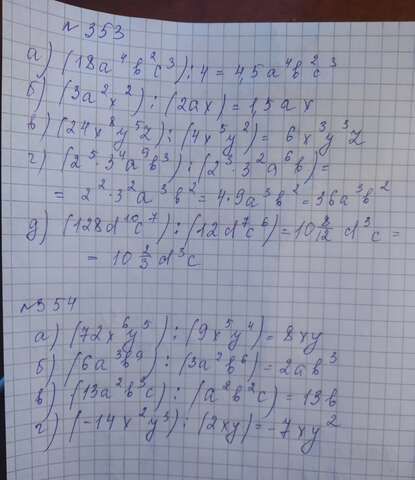 № 353
а) (18a⁴b²c³) : 4 = 4,5a⁴b²c³
б) (3a²x²) : (2ax) = 1,5ax
в) (24x⁸y⁵z) : (4x⁵y²) = 6x³y³z
г) (2⁵·3⁴a⁹b³) : (2³·3²a⁶b) =
= 2²·3²a³b² = 4·9a³b² = 36a³b²
д) (128d¹⁰c⁷) : (12d⁷c⁶) = 10 8/12 d³c =
= 10 2/3 d³c
№ 354
а) (72x⁶y⁵) : (9x⁵y⁴) = 8xy
б) (6a³b⁹) : (3a²b⁶) = 2ab³
в) (13a²b³c) : (a²b²c) = 13b
г) (-14x²y³) : (2xy) = -7xy²